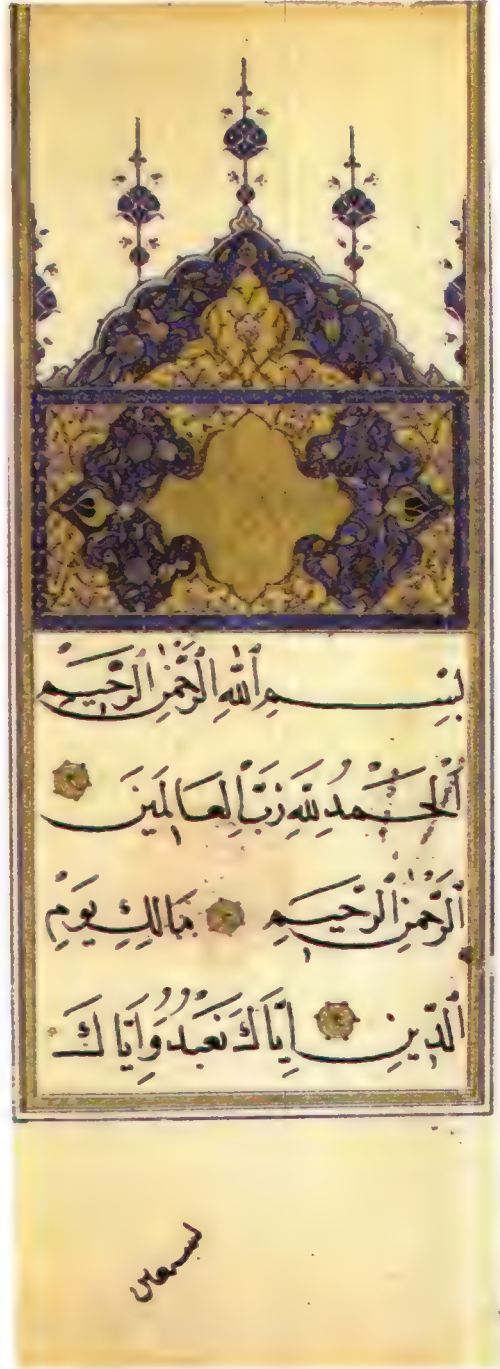 بِسْمِ ٱللَّهِ ٱلرَّحْمٰنِ ٱلرَّحِيمِ
ٱلْحَمْدُ لِلَّهِ رَبِّ ٱلْعَالَمِينَ
ٱلرَّحْمٰنِ ٱلرَّحِيمِ مَالِكِ يَوْمِ
ٱلدِّينِ إِيَّاكَ نَعْبُدُ وَإِيَّاكَ
نستعين